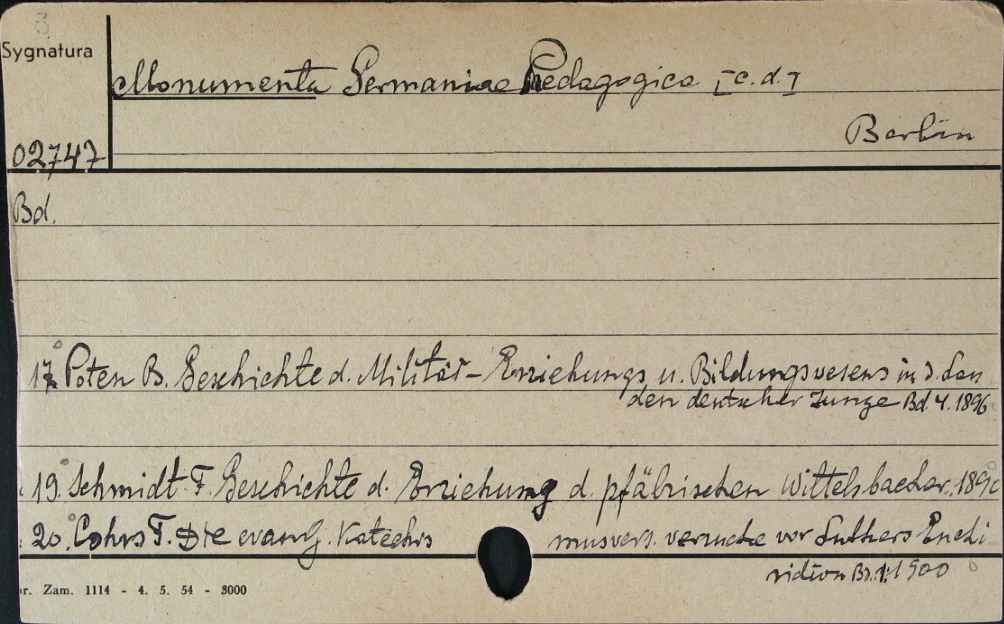 3
Sygnatura
Monumenta Germaniae Pedagogica [c.d.]
Berlin
02747
Bd.
17° Poten B. Geschichte d. Militär-Erziehungs u. Bildungswesens in d. Lan
den deutscher Zunge Bd. 4. 1896
19.° Schmidt F. Geschichte d. Erziehung d. pfälzischen Wittelsbacher. 1899
20.° Cohrs F. Die evang. Katechis
musvers. versuche vor Luthers Enchi
ridion Bd. 1. 1900
r. Zam. 1114 - 4. 5. 54 - 3000